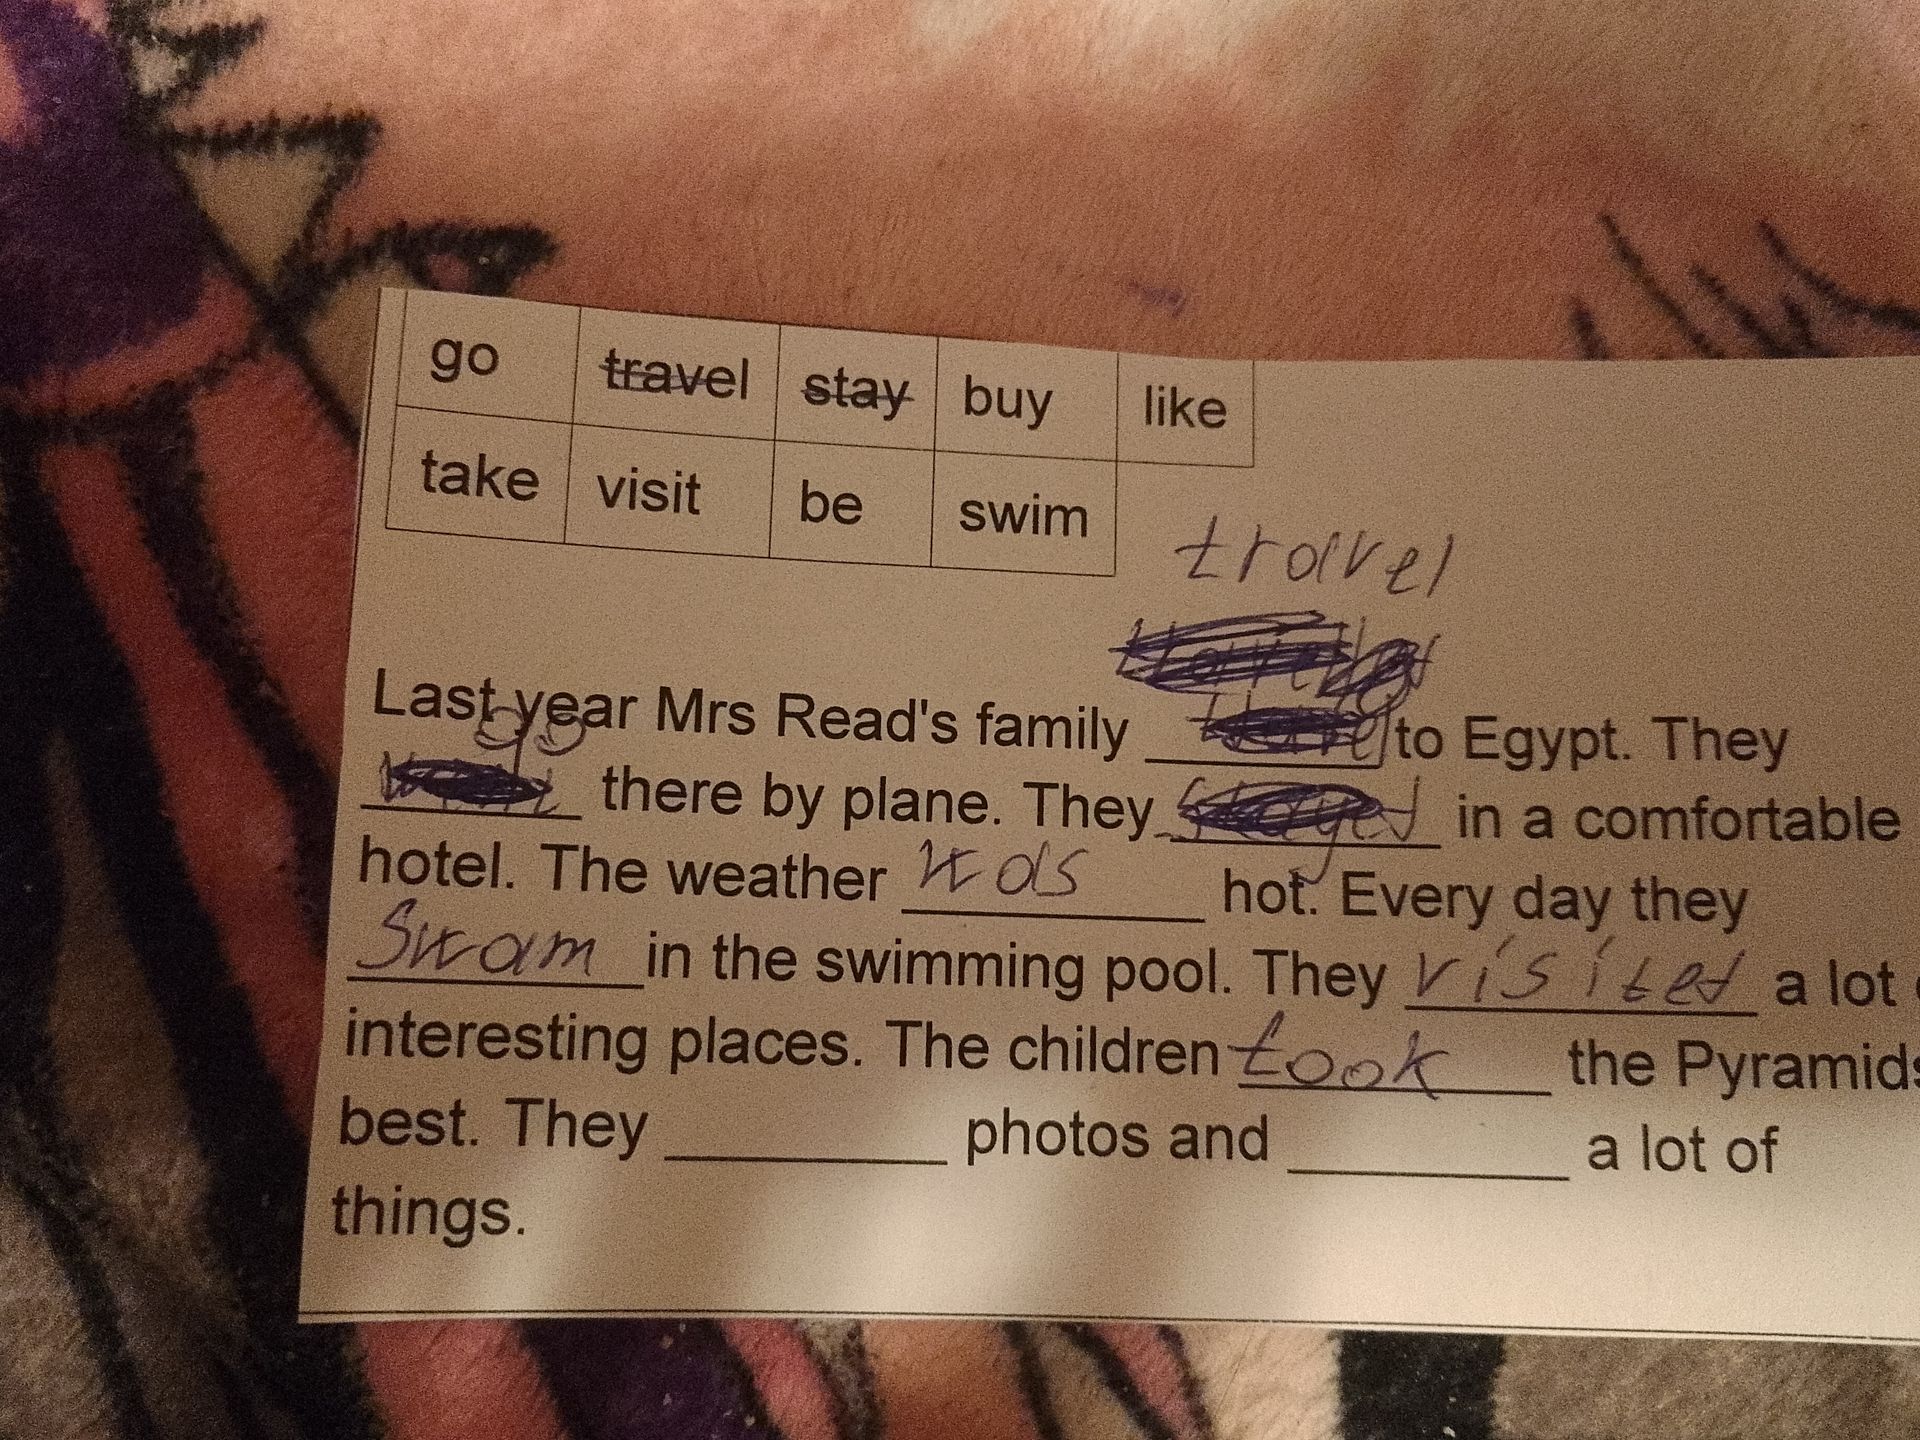 go travel stay buy like
take visit be swim
travel
Last year Mrs Read's family to Egypt. They
go
there by plane. They stayed in a comfortable
hotel. The weather was hot. Every day they
Swam in the swimming pool. They visited a lot
interesting places. The children took the Pyramids
best. They ________ photos and ________ a lot of
things.